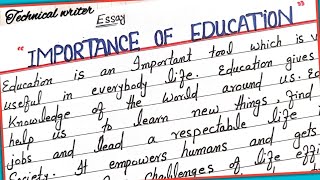 Technical writer
Essay
"IMPORTANCE OF EDUCATION"
Education is an Important tool which is v
useful in everybody life. Education gives
Knowledge of the world around us. Ed
help us to learn new things, find
jobs and lead a respectable life
Society. It empowers humans and gets
challenges of life effi